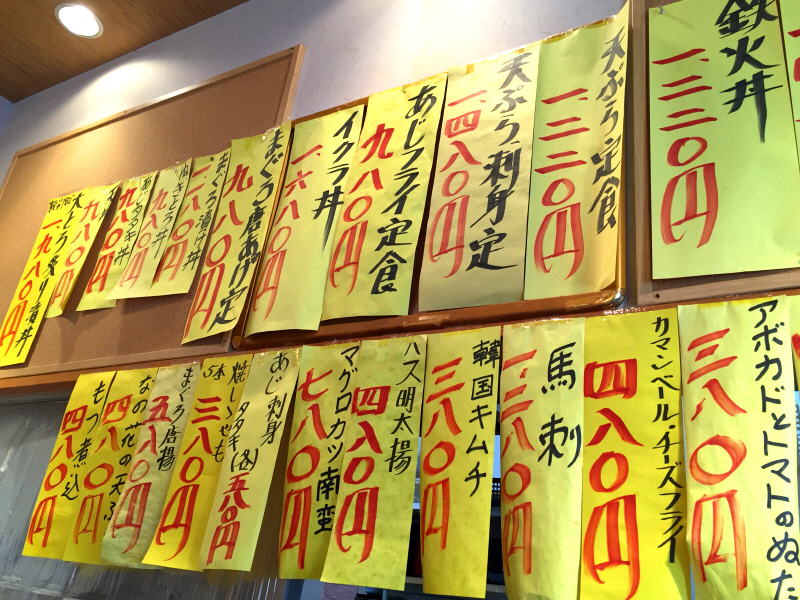 鉄火丼
一、二二〇円
天ぷら定食
一、二二〇円
天ぷら刺身定
一、四八〇円
あじフライ定食
九八〇円
イクラ丼
一、六八〇円
まぐろ唐あげ定
九八〇円
まぐろ漬け丼
ねぎとろ丼
九八〇円
一、九八〇円
アボカドとトマトのぬた
三八〇円
カマンベール・チーズフライ
四八〇円
馬刺
韓国キムチ
三八〇円
ハス明太揚
四八〇円
マグロカツ南蛮
七八〇円
あじ刺身
タタキ(各)
五八〇円
焼ししゃも
5本
三八〇円
まぐろ唐揚
五八〇円
なの花の天ぷ
四八〇円
もつ煮込
四八〇円